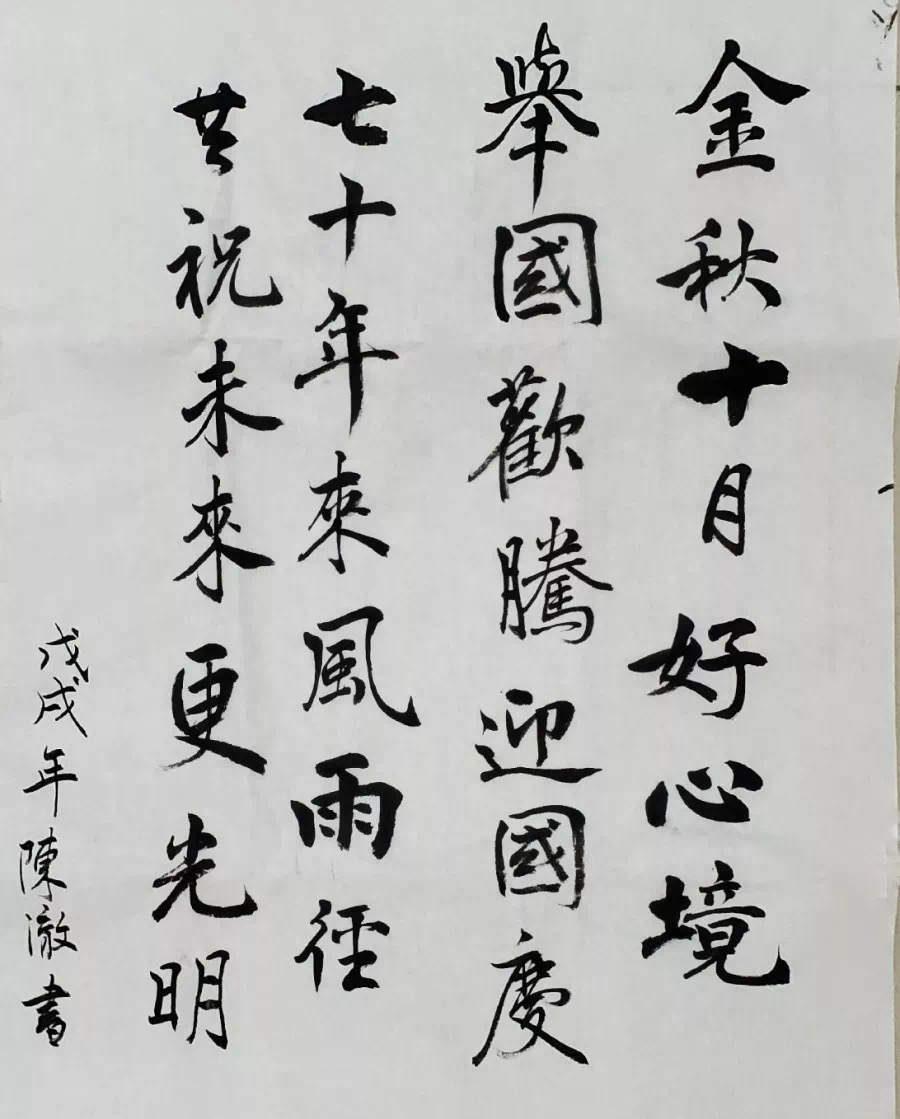 金秋十月好心境
舉國歡騰迎國慶
七十年來風雨徑
共祝未來更光明
戊戌年陳澈書